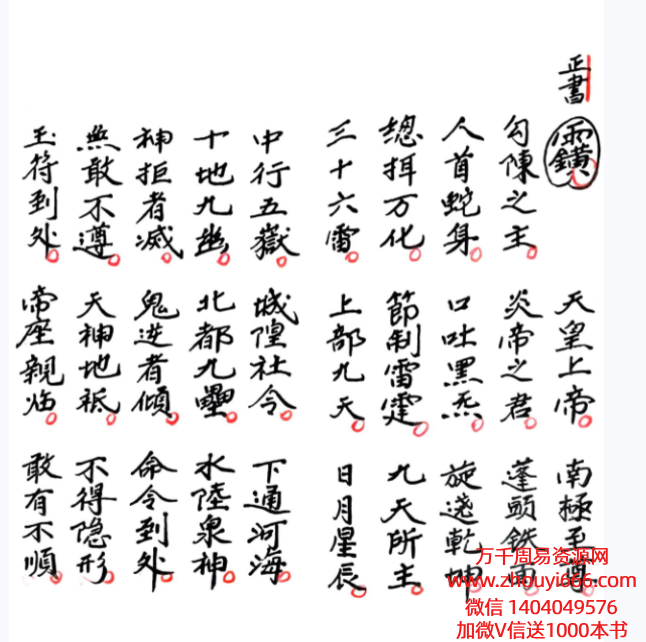 正書
天皇上帝 南極至尊
勾陳之主 炎帝之君 蓬頭鉄
人首蛇身 口吐黑炁 旋遶乾坤
總 万化 節制雷霆 九天所主
三十六雷 上部九天 日月星辰
中行五嶽 城隍社令 下通河海
十地九幽 北都九壘 水陸泉神
神拒者滅 鬼 者傾 命令到处
無敢不遵 天神地祇 不得隐形
玉符到处 帝座親临 敢有不順
万千周易资源网
www.zhouyi666.com
微信 1404049576
加微V信送1000本书